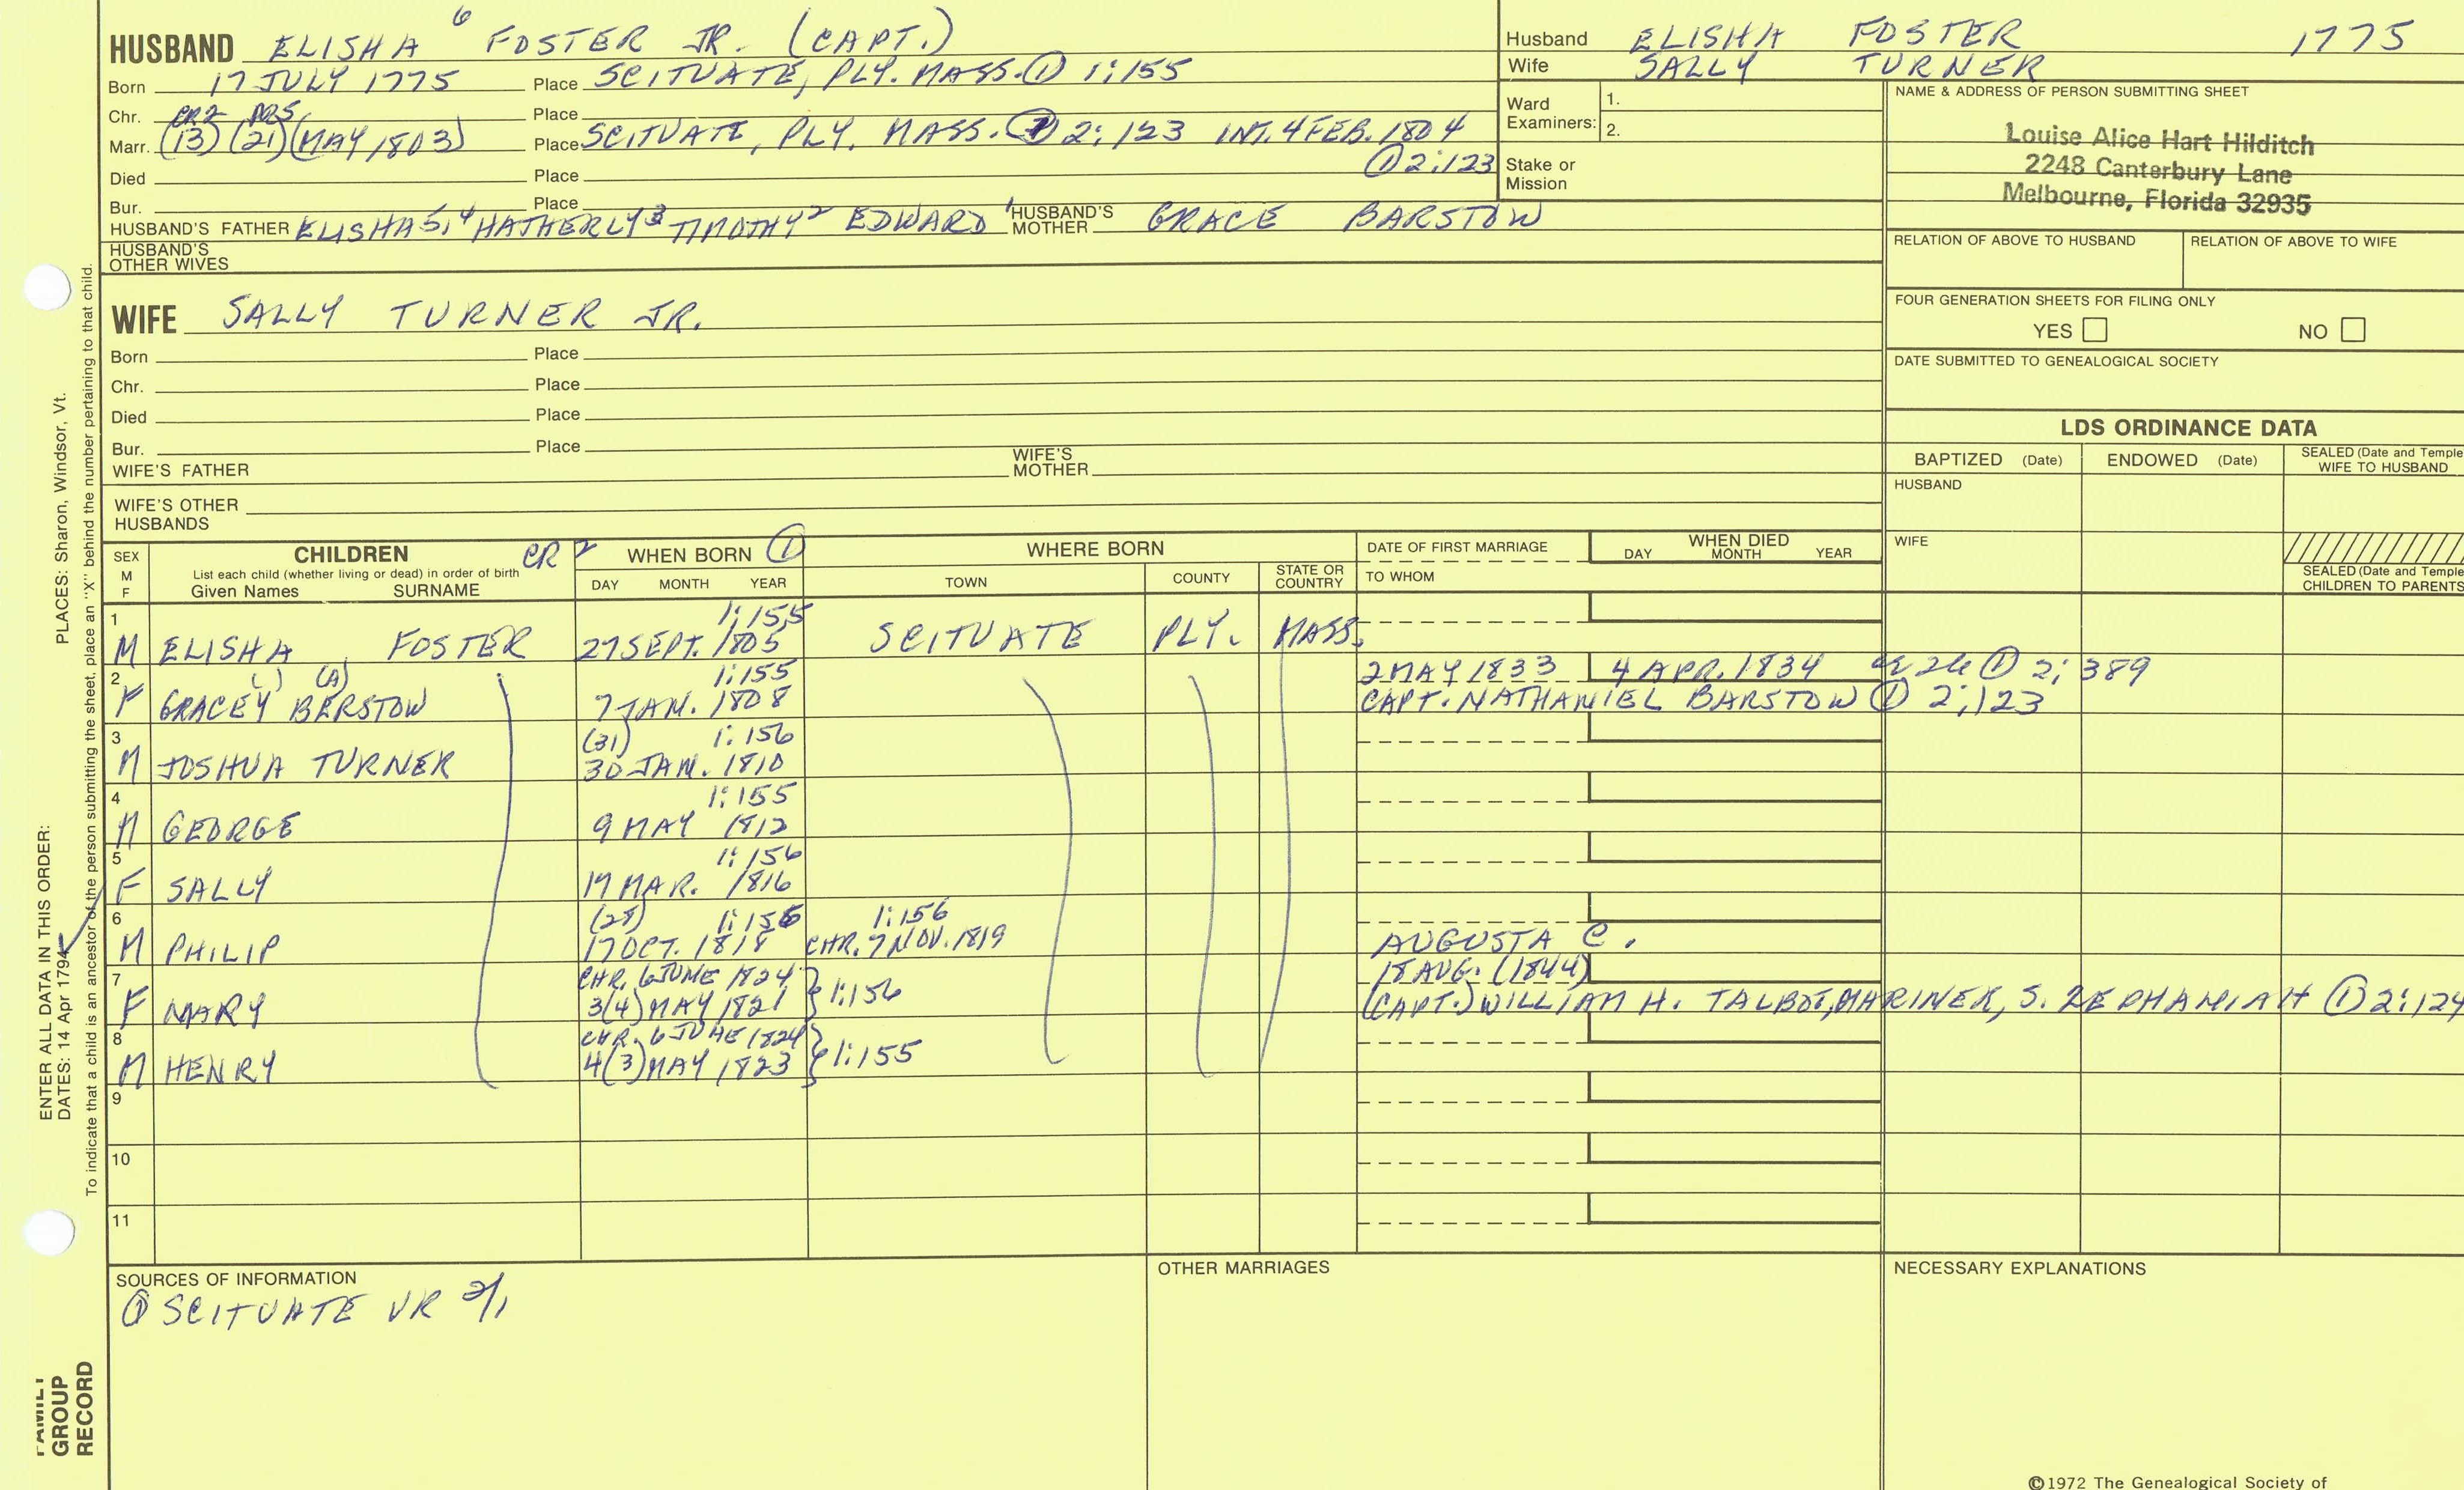 HUSBAND ELISHA 6 FOSTER JR. (CAPT.)
Born 17 JULY 1775 Place SCITUATE, PLY. MASS. ① 1:155
Chr. CR2 Place
Marr. (13) (21) (MAY 1803) Place SCITUATE, PLY. MASS. ① 2:123 INT. 4 FEB. 1804
① 2:123
Died Place
Bur. Place
HUSBAND'S FATHER ELISHA 5, 4 HATHERLY 3 TIMOTHY 2 EDWARD 1 HUSBAND'S MOTHER GRACE BARSTOW
HUSBAND'S OTHER WIVES
WIFE SALLY TURNER JR.
Born Place
Chr. Place
Died Place
Bur. Place
WIFE'S FATHER WIFE'S MOTHER
WIFE'S OTHER HUSBANDS
Husband ELISHA FOSTER 1775
Wife SALLY TURNER
Ward Examiners: 1.
2.
Stake or Mission
NAME & ADDRESS OF PERSON SUBMITTING SHEET
Louise Alice Hart Hilditch
2248 Canterbury Lane
Melbourne, Florida 32935
RELATION OF ABOVE TO HUSBAND RELATION OF ABOVE TO WIFE
FOUR GENERATION SHEETS FOR FILING ONLY
YES NO
DATE SUBMITTED TO GENEALOGICAL SOCIETY
LDS ORDINANCE DATA
BAPTIZED (Date) ENDOWED (Date) SEALED (Date and Temple
WIFE TO HUSBAND
HUSBAND
WIFE
SEALED (Date and Temple
CHILDREN TO PARENTS
SEX M F
CHILDREN CR 2
List each child (whether living or dead) in order of birth
Given Names SURNAME
WHEN BORN ①
DAY MONTH YEAR
WHERE BORN
TOWN COUNTY STATE OR COUNTRY
DATE OF FIRST MARRIAGE
TO WHOM
WHEN DIED
DAY MONTH YEAR
1 1:155
M ELISHA FOSTER 27 SEPT. 1805 SCITUATE PLY. MASS.
2 ( ) (A) 1:155 2 MAY 1833 4 APR. 1834 ① 2:389
F GRACEY BERSTOW 7 JAN. 1808 CAPT. NATHANIEL BARSTOW ① 2:123
3 (31) 1:156
M JOSHUA TURNER 30 JAN. 1810
4 1:155
M GEORGE 9 MAY 1812
5 1:156
F SALLY 17 MAR. 1816
6 1:156 1:156
M PHILIP 17 OCT. 1818 CHR. 7 NOV. 1819 AUGUSTA C.
7 CHR. 6 JUNE 1824 18 AUG. (1844)
F MARY 3(4) MAY 1821 } 1:156 (CAPT.) WILLIAM H. TALBOT, MARINER, S. ZEPHANIAH ① 2:124
8 CHR. 6 JUNE 1824
M HENRY 4(3) MAY 1823 } 1:155
9
10
11
SOURCES OF INFORMATION
① SCITUATE VR
OTHER MARRIAGES
NECESSARY EXPLANATIONS
©1972 The Genealogical Society of
PLACES: Sharon, Windsor, Vt.
ENTER ALL DATA IN THIS ORDER:
DATES: 14 Apr 1794
To indicate that a child is an ancestor of the person submitting the sheet, place an "X" behind the number pertaining to that child.
FAMILY
GROUP
RECORD